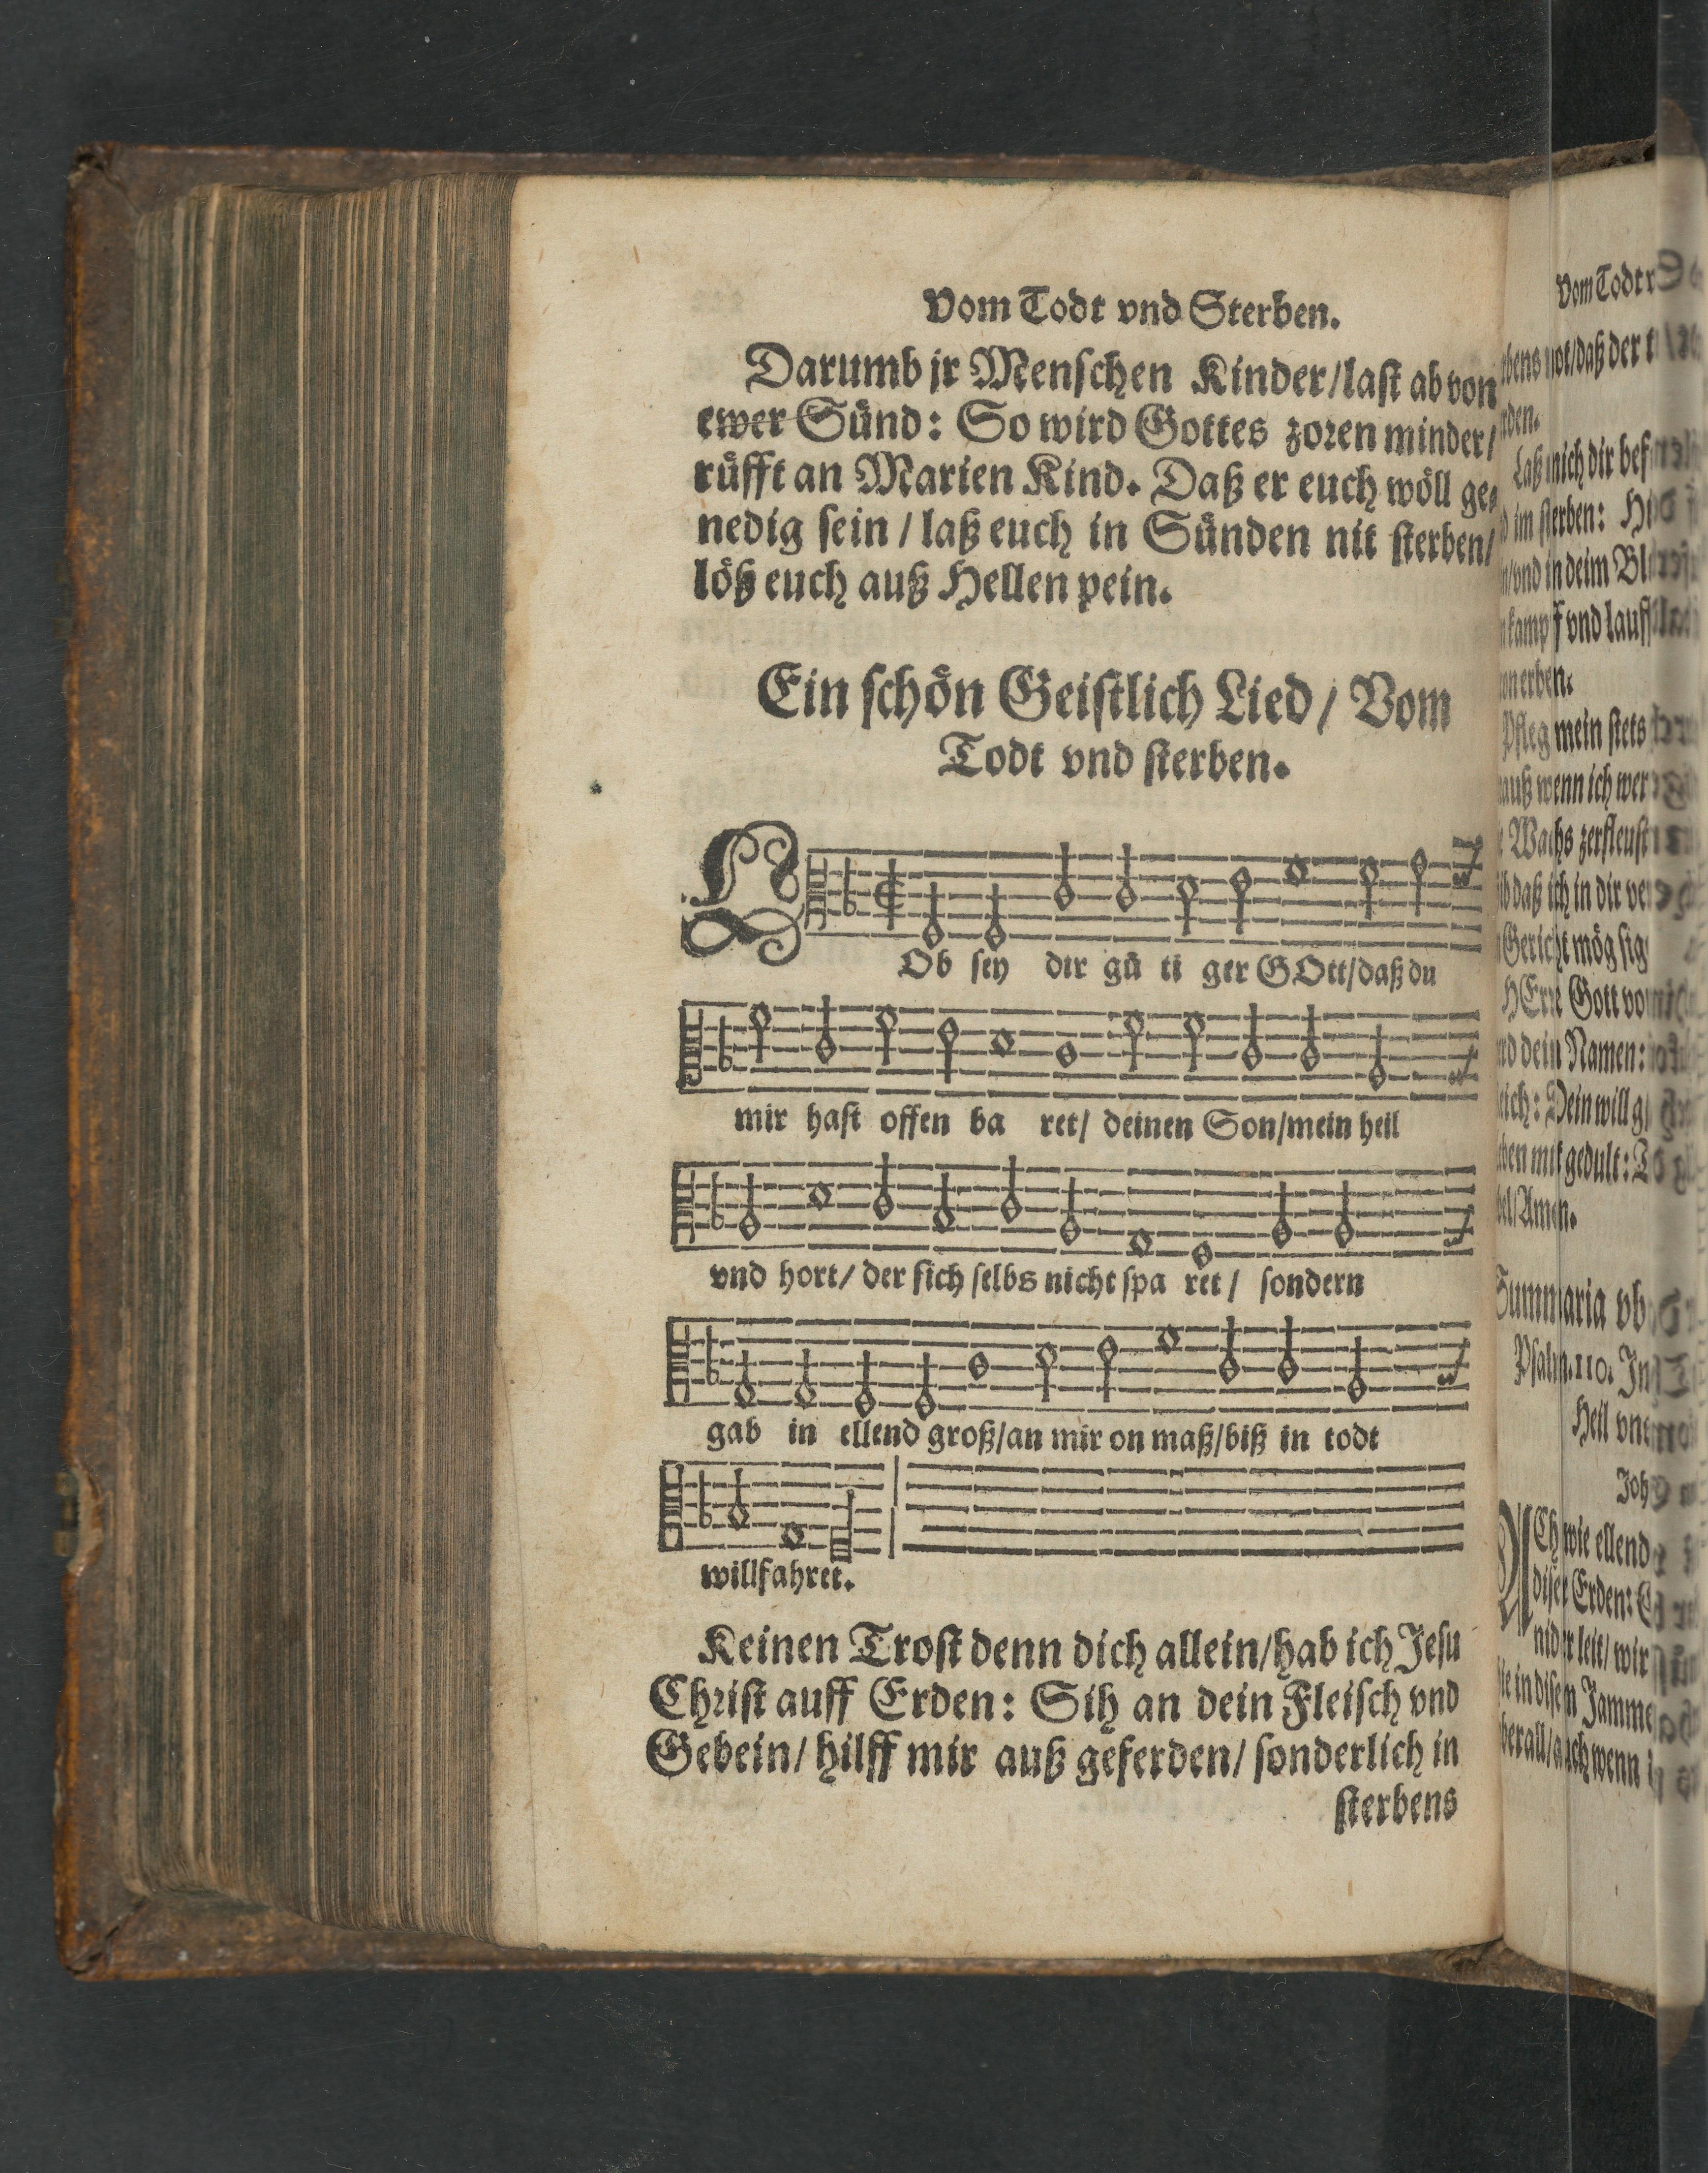 Vom Todt vnd Sterben.
Darumb jr Menschen Kinder/last ab von
ewer Sünd: So wird Gottes zoren minder/
rüfft an Marien Kind. Daß er euch wöll ge-
nedig sein / laß euch in Sünden nit sterben/
löß euch auß Hellen pein.
Ein schön Geistlich Lied / Vom
Todt vnd sterben.
LOb sey dir gü ti ger GOtt/daß du
mir hast offen ba ret/ deinen Son/mein heil
vnd hort/ der sich selbs nicht spa ret / sondern
gab in ellend groß/an mir on maß/biß in todt
willfahret.
Keinen Trost denn dich allein/hab ich Jesu
Christ auff Erden: Sih an dein Fleisch vnd
Gebein/ hilff mir auß geferden/ sonderlich in
sterbens
Vom Todt
not/daß der
Laß mich dir
im sterben:
vnd in deim
kampff vnd lauff
erben.
Pfleg mein stets
auß wenn ich wer
Wachs zerfleust
daß ich in dir
Gericht mög
HErr Gott
dein Namen:
Dein will
mit gedult:
Amen.
Summaria
Psalm. 110. Jn
Heil
Joh
ACh wie ellend
diser Erden:
nider leit/ wir
in disem Jamme
vberall/ auch wenn